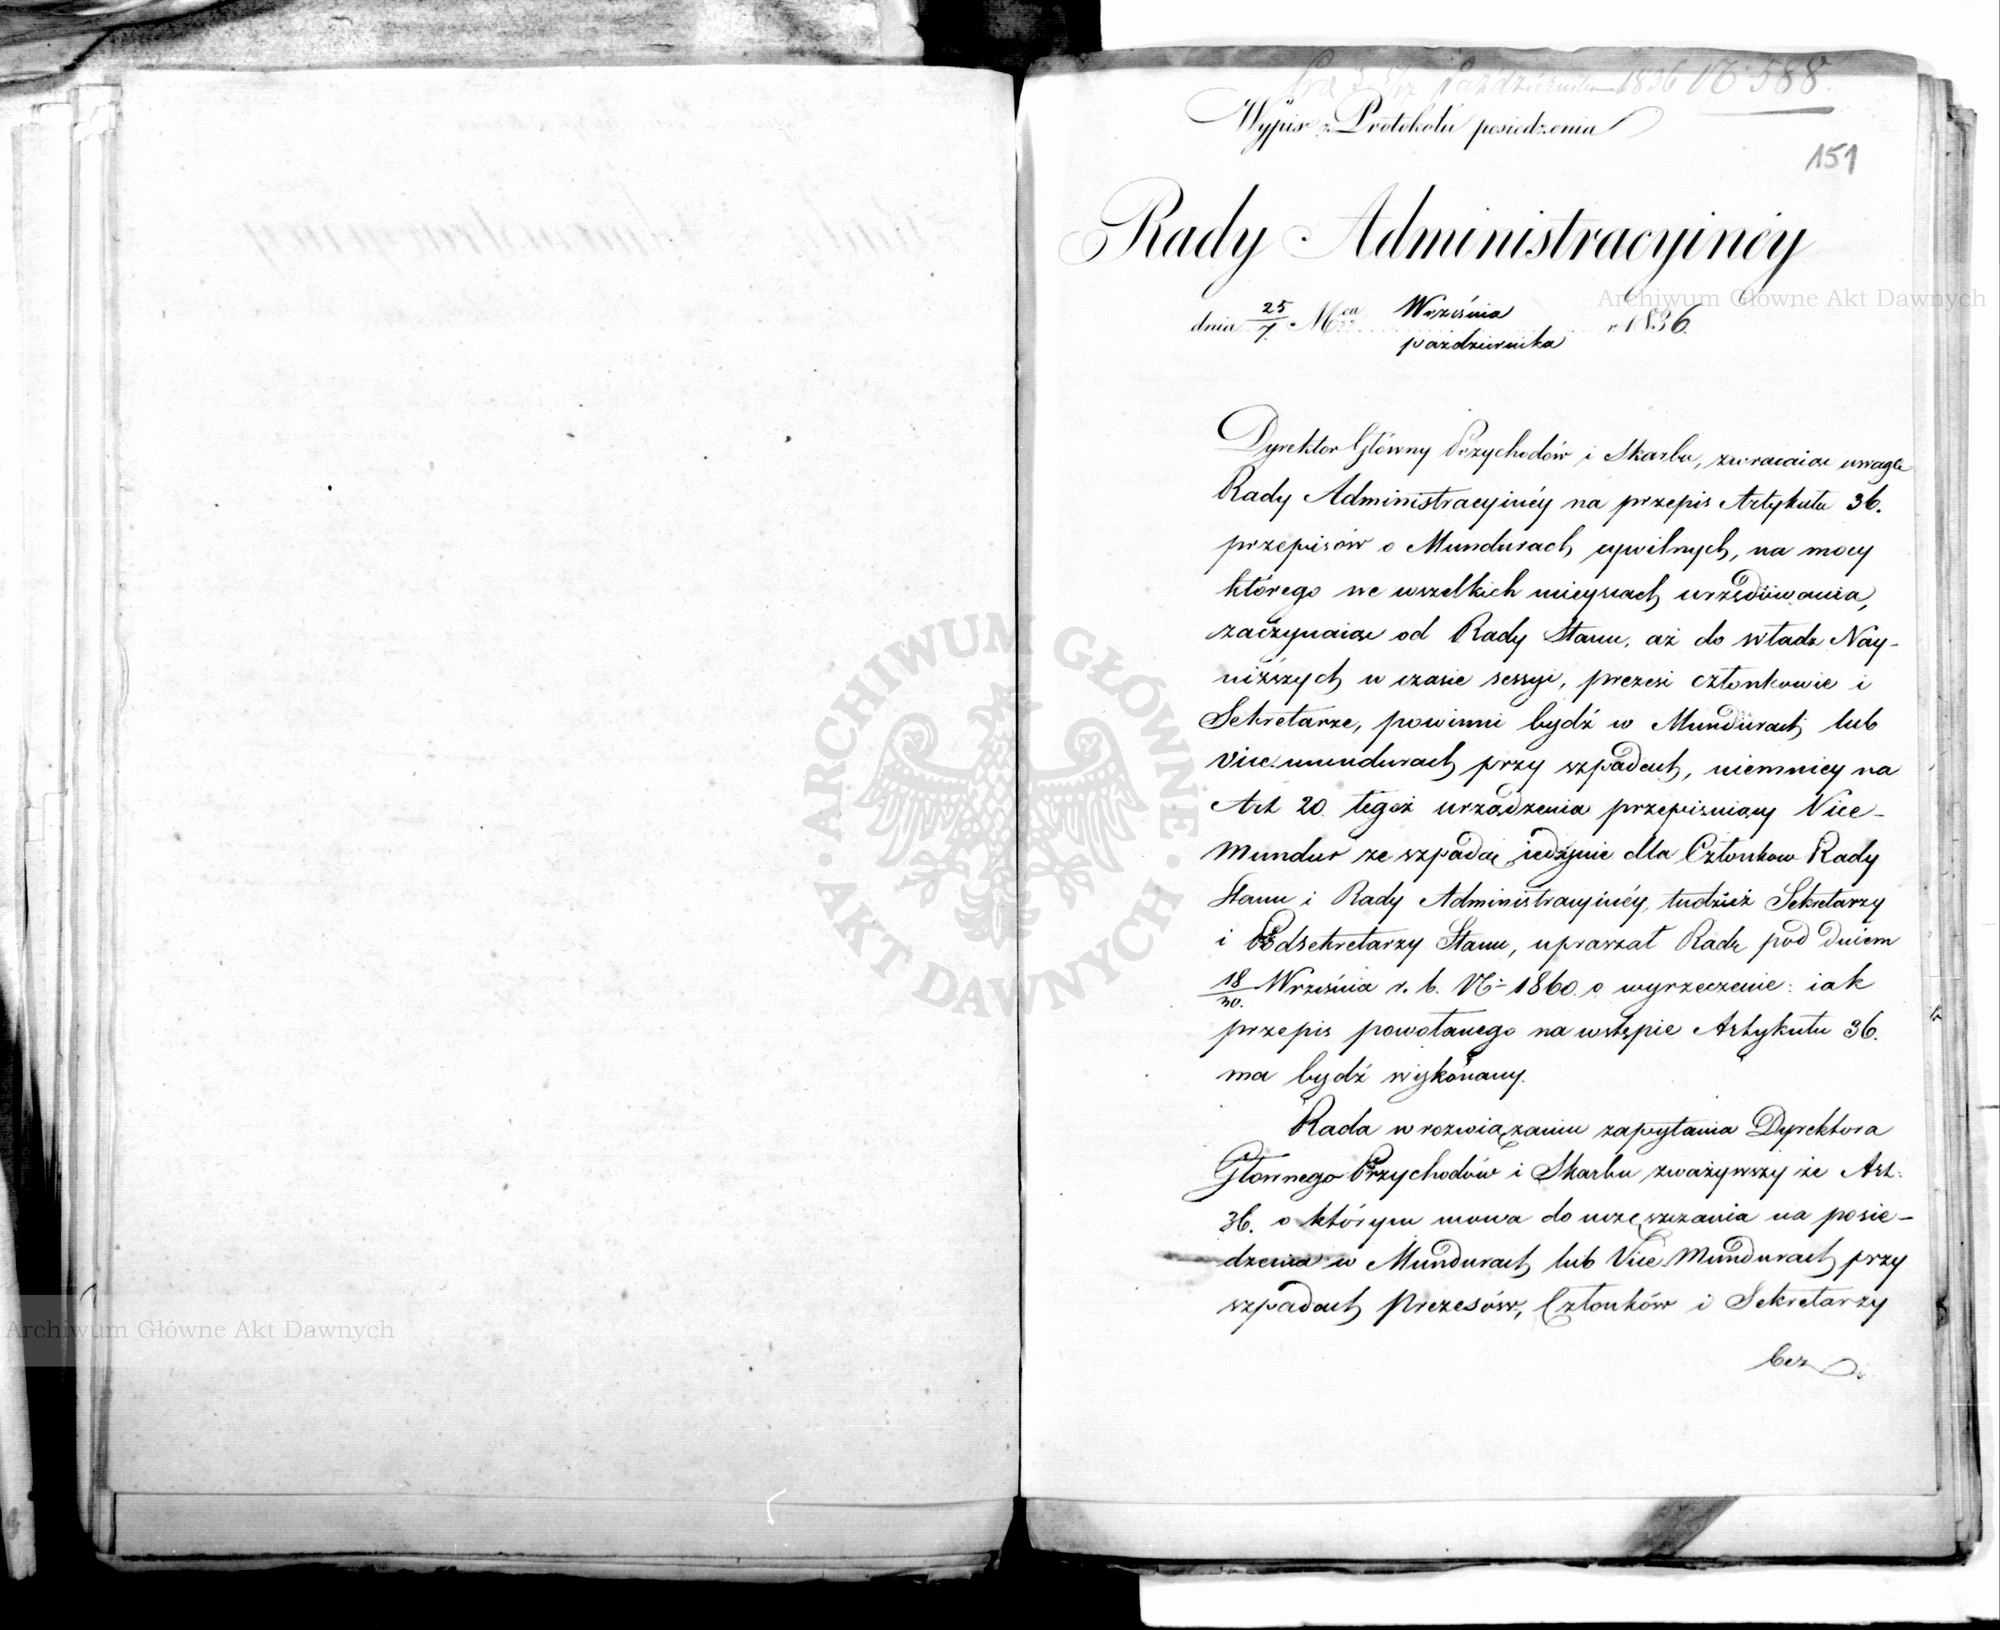 Października 1836 N° 588.
Wypis z Protokółu posiedzenia
151
Rady Administracyinéy
dnia 25/7. Mca Września
października r. 1836.
Dyrektor Główny Przychodów i Skarbu, zwracaiąc uwagę
Rady Administracyinéy na przepis Artykułu 36.
przepisów o Mundurach cywilnych, na mocy
którego we wszelkich mieyscach urzędowania,
zaczynaiąc od Rady Stanu, aż do władz Nay-
niższych w czasie sessyi, prezesi członkowie i
Sekretarze, powinni bydź w Mundurach lub
Vice mundurach przy szpadach, niemniey na
Art 20. tegoż urządzenia przepisuiący Vice-
Mundur ze szpadą iedynie dla Członkow Rady
Stanu i Rady Administracyinéy, tudzież Sekretarzy
i Podsekretarzy Stanu, upraszał Radę pod dniem
18/30. Września r. b. N° 1860. o wyrzeczenie: iak
przepis powołanego na wstępie Artykułu 36.
ma bydź wykonany.
Rada w rozwiązaniu zapytania Dyrektora
Głównego Przychodów i Skarbu zważywszy że Art.
36. o którym mowa do uczęszczania na posie-
dzenia w Mundurach lub Vice Mundurach przy
szpadach Prezesów, Członków i Sekretarzy
bez
Archiwum Główne Akt Dawnych
Archiwum Główne Akt Dawnych
ARCHIWUM GŁÓWNE · AKT DAWNYCH ·